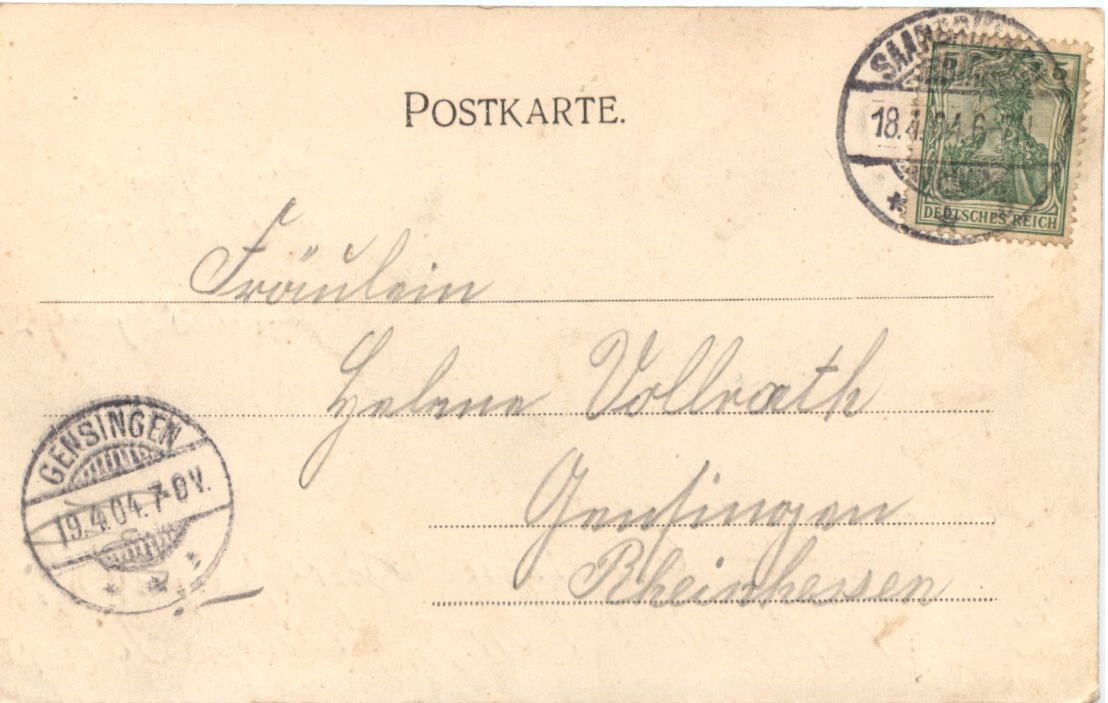 POSTKARTE.
18.4.04.6
5
DEUTSCHES REICH
Fräulein
Helene Vollrath
Gensingen
Rheinhessen
GENSINGEN
19.4.04.7-8V.